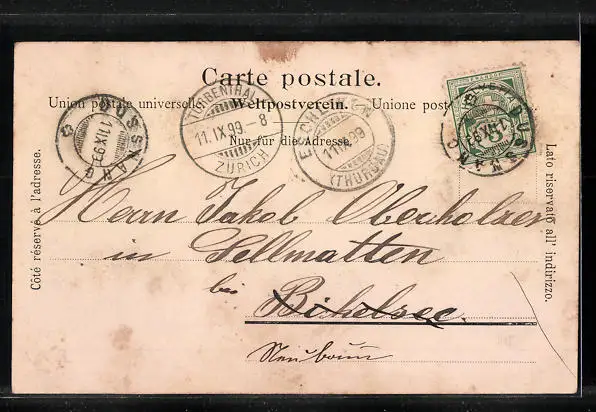 Carte postale.
Union postale universelle. Weltpostverein. Unione post
Nur für die Adresse.
Côté réservé à l'adresse.
Lato riservato all' indirizzo.
DUSSNANG
11 IX 99
TURBENTHAL
11. IX 99 - 8
ZÜRICH
ESCHLIKON
11 IX 99
(THURGAU)
FRANCO
DUSSNANG
Herrn Jakob Oberholzer
in Sellmatten
bei Bichelsee.
Neubrunn